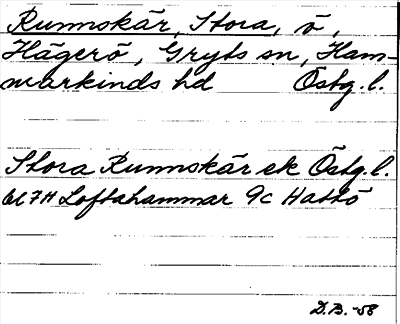 Runnskär, Stora, ö,
Hägerö, Gryts sn, Ham-
markinds hd Östg. l.
Stora Runnskär ek Östg. l.
bl 7H Loftahammar 9c Hattö
D.B. -58